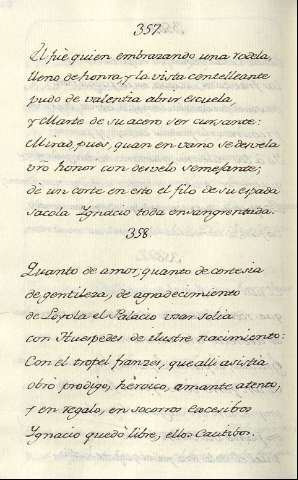 357.
El fuè quien embrazando una rodela,
lleno de honra, y la vista centelleante
pudo de valentia abrir escuela,
y Marte de su acero ser cursante:
Mirad, pues, quan en vano se desvela
vro honor con desvelo semejante;
dè un corte en esto el filo de su espada
sacola Ygnacio toda ensangrentada.
358.
Quanto de amor, quanto de cortesia
de gentileza, de agradecimiento
de Loyola el Palacio usar solia
con Huespedes de ilustre nacimiento:
Con el tropel franzes, que alli asistia
obrò prodigo, hèroico, amante atento,
y en regalo, en socorros Excesibos
Ygnacio quedò libre, ellos Cautibos.